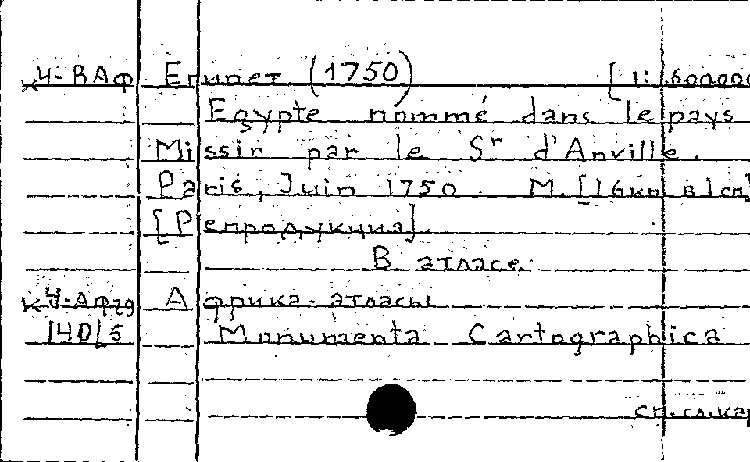 к Ч-ВАф Египет (1750) [1:1600000
Egypte nommé dans le pays
Missir par le Sr d'Anville.
Paris, Juin 1750 М. [16км в 1см]
[Репродукция]
В атласе:
к Ч-Афгд Африка-атласы
140/5 Monumenta Cartographica
см. гл. кар